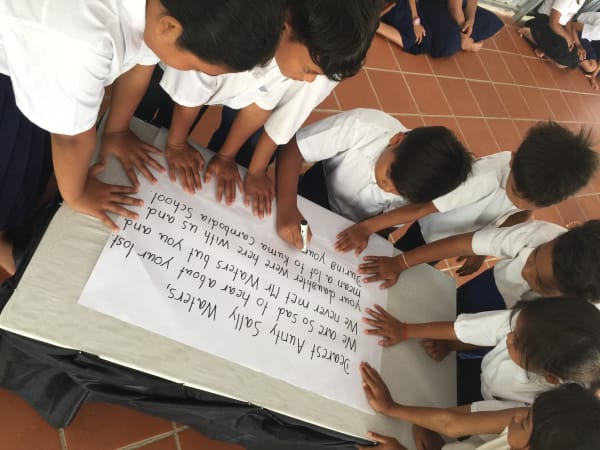 Dearest Aunty Sally Waters,
We are so sad to hear about your lost
We never met Mr Waters but you and
your daughter were here with us and
mean a lot to Kuma Cambodia School
During your